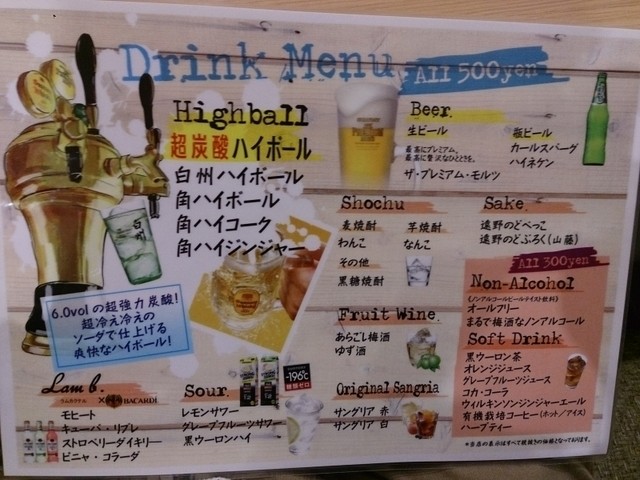 Drink Menu
All 500yen
Highball
超炭酸ハイボール
白州ハイボール
角ハイボール
角ハイコーク
角ハイジンジャー
白州
6.0volの超強力炭酸!
超冷え冷えの
ソーダで仕上げる
爽快なハイボール!
Beer.
生ビール
最高にプレミアム、
最高に贅沢なひとときを。
ザ・プレミアム・モルツ
瓶ビール
カールスバーグ
ハイネケン
Shochu
麦焼酎
わんこ
その他
黒糖焼酎
芋焼酎
なんこ
Sake.
遠野のどべっこ
遠野のどぶろく(山藤)
Fruit Wine.
あらごし梅酒
ゆず酒
Original Sangria
サングリア 赤
サングリア 白
All 300yen
Non-Alcohol
(ノンアルコールビールテイスト飲料)
オールフリー
まるで梅酒なノンアルコール
Soft Drink
黒ウーロン茶
オレンジジュース
グレープフルーツジュース
コカ・コーラ
ウィルキンソンジンジャーエール
有機栽培コーヒー(ホット/アイス)
ハーブティー
*当店の表示はすべて税抜きの価格となっております。
Lam b.
ラムカクテル
× BACARDI
モヒート
キューバ・リブレ
ストロベリーダイキリー
ピニャ・コラーダ
Sour.
レモンサワー
グレープフルーツサワー
黒ウーロンハイ
-196℃
糖類ゼロ